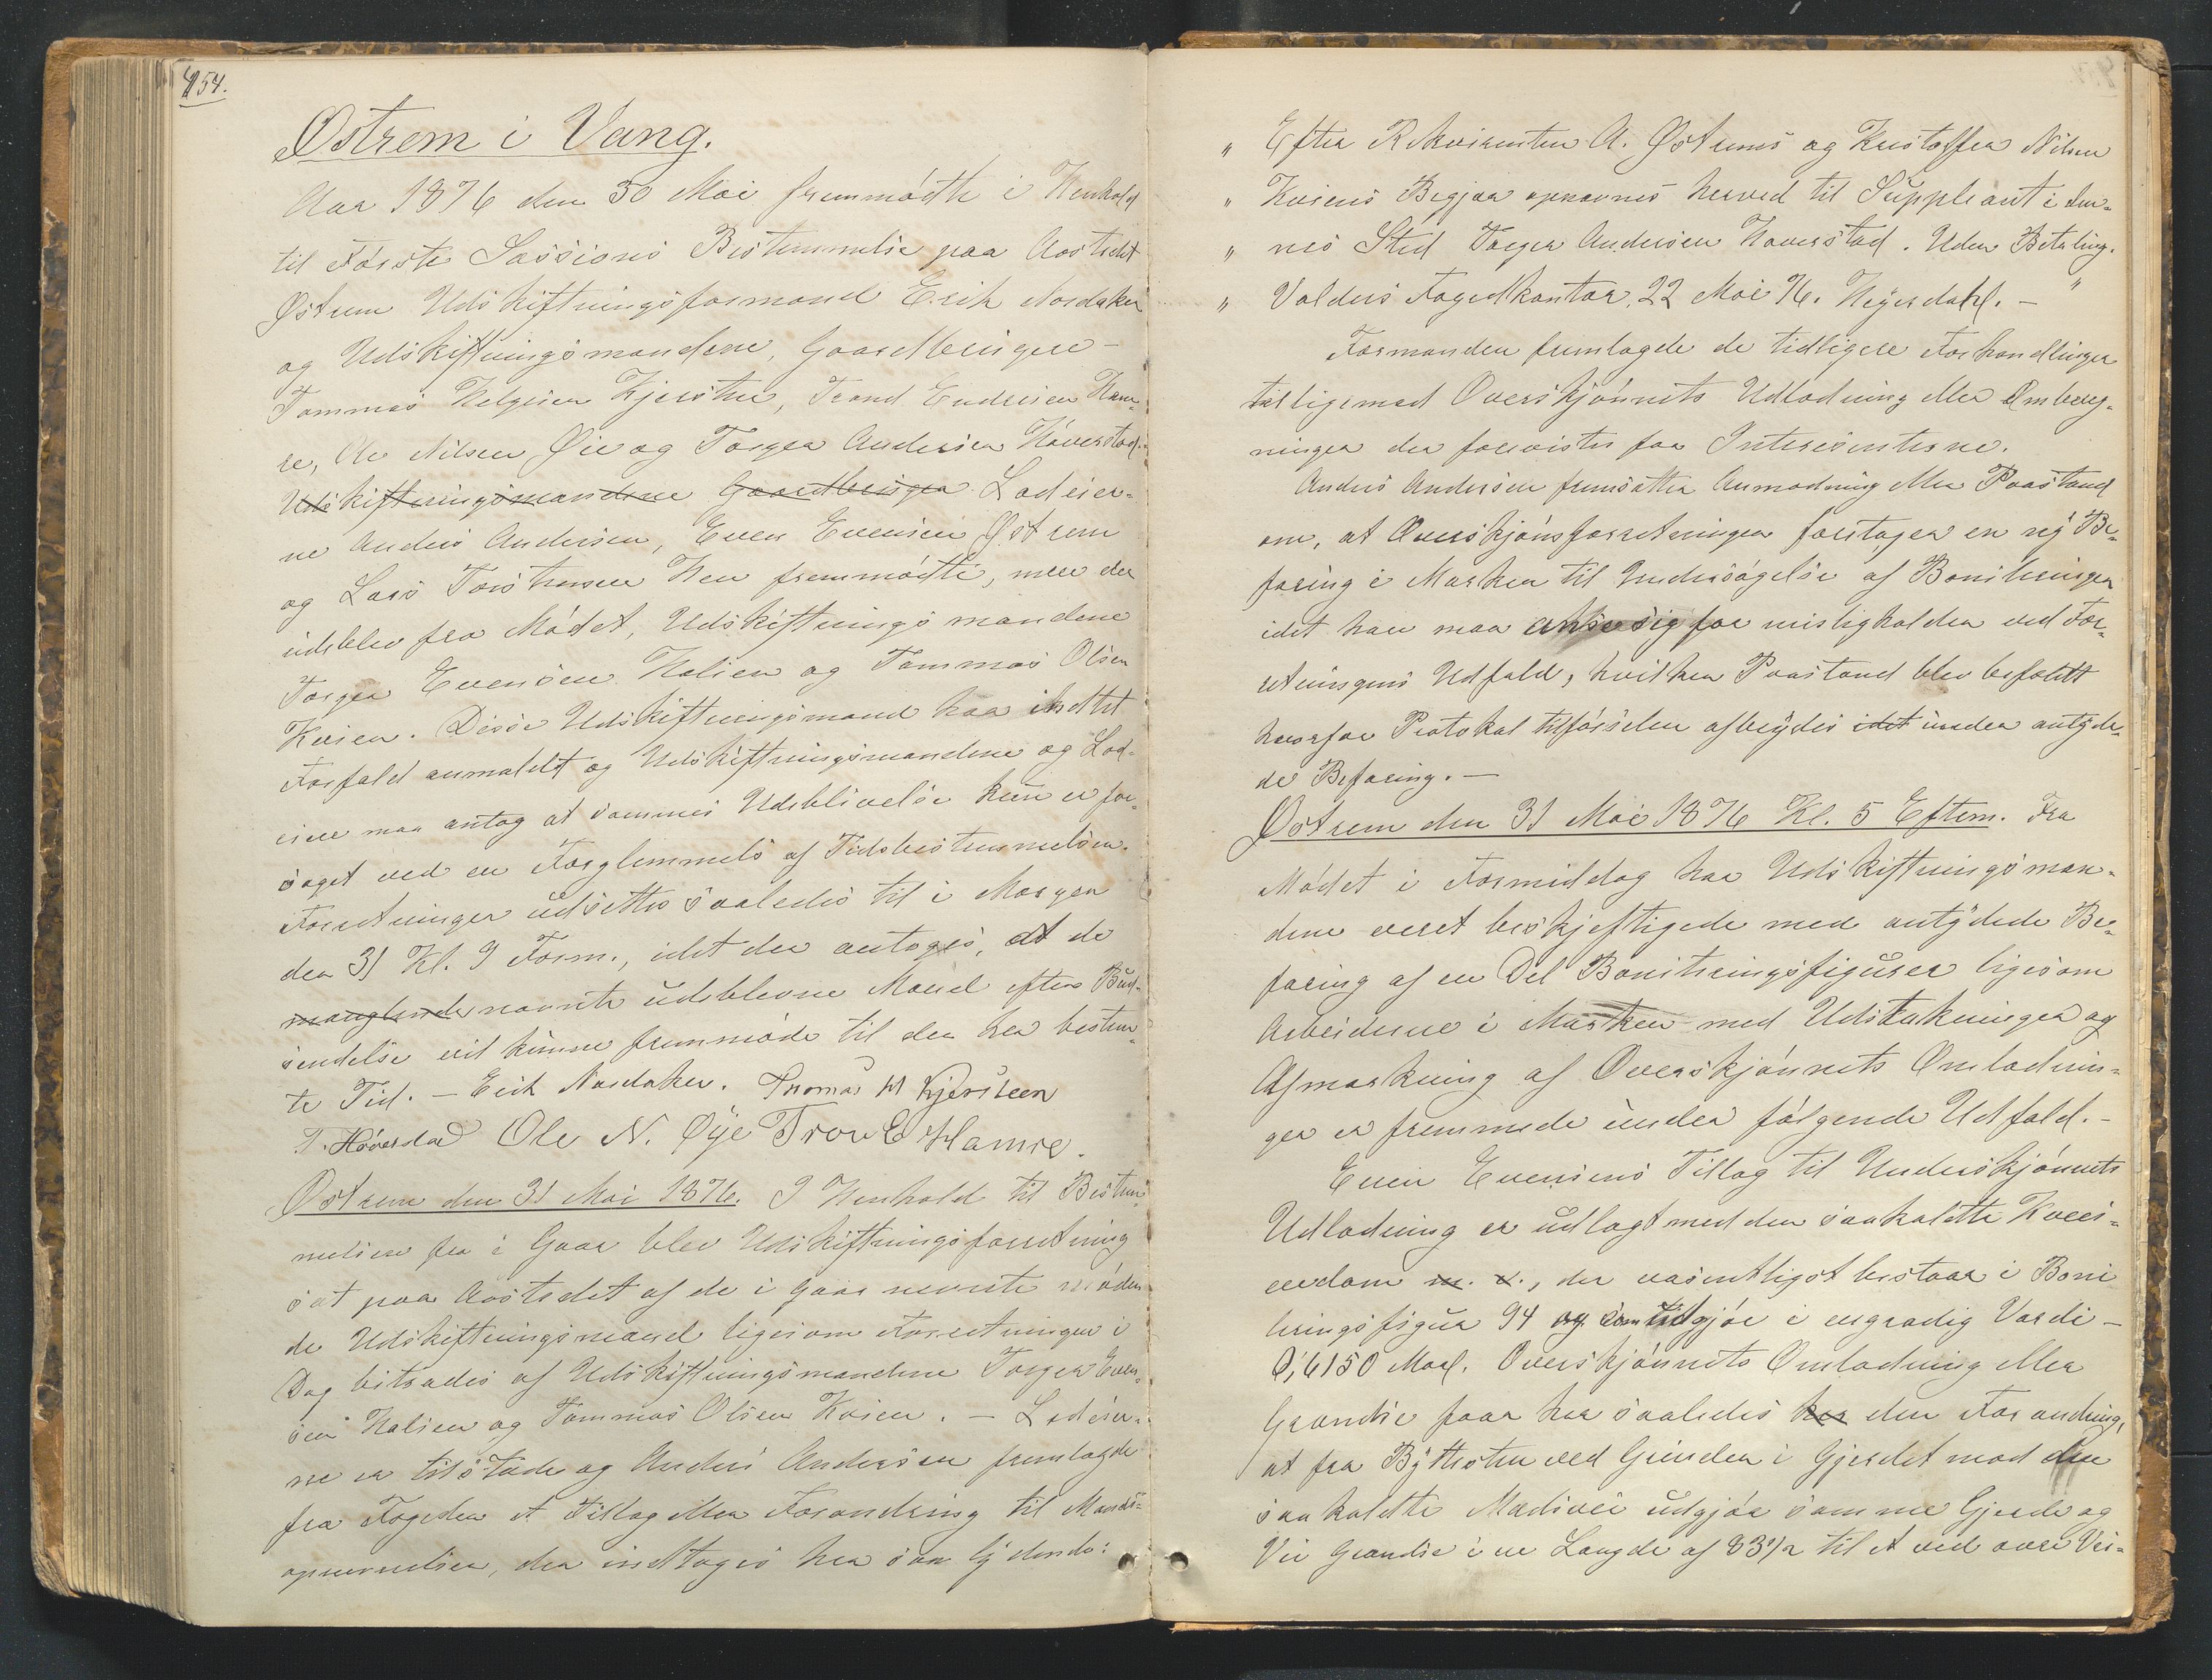 454.
Østrem i Vang.
Aar 1876 den 30 Mai fremmødte i Henhold
til Første Sassions Bestemmelse paa Aastedet
Østrem Udskiftningsformand Erik Nordaker
og Udskiftningsmændene, Gaardbrugere
Tommas Helgesen Kjersten, Trond Endresen Ham-
re, Ole Nilsen Øie og Torger Andersen Høverstad.
Udskiftningsmændene Gaardbruger Lodeier-
ne Anders Andersen, Even Evensen Østrem
og Lars Torstensen Hen fremmødte, men der
udeblev fra Mødet, Udskiftnings mændene
Torger Evensen Halien og Tommas Olsen
Kvien. Disse Udskiftningsmænd har intet
Forfald anmeldt og Udskiftningsmændene og Lod-
eiere maa antag at sammes Udeblivelse kun er for-
saget ved en Forglemmels af Tidsbestemmelsen.
Forretningen udsettes saaledes til i Morgen
den 31 Kl. 9 Form., idet der antages, at de
manglende nævnte udeblevne Mænd efter Bud-
sendelse vil kunne fremmøde til den her bestem-
te Tid. – Erik Nordaker. Thomas H Kjersteen
T. Høverstad Ole N. Øÿe Tron E Hamre.
Østrem den 31 Mai 1876. I Henhold til Bestem-
melsen fra i Gaar blev Udskiftningsforretning
sat paa Aastedet af de i Gaar nevnte møden-
de Udskiftningsmænd ligesom Forretningen i
Dag bitrædes af Udskiftningsmændene Torger Even-
sen Halien og Tommas Olsen Kvien. – Lodeier-
ne er tilstæde og Anders Andersen fremlagde
fra Fogeden et Tillæg eller Forandring til Mands-
opnevnelsen, der indtages her saa lydende:
„ Efter Rekvirenten A. Østrems og Kristoffer Nilsen
„ Kviens Begjær opnævnes herved til Suppleant i den-
„ nes Sted Torger Andersen Høverstad. Uden Betaling.
„ Valders Fogedkontor, 22 Mai 76. Heyerdahl. – "
Formanden fremlagde de tidligere Forhandlinger
tilligemed Overskjønnets Udlodning eller Ombereg-
ninger der forevistes for Interesenterne.
Anders Andersen fremsatter Anmodning eller Paastand
om, at Overskjønsforretningen foretager en ny Be-
faring i Marken til Undersøgelse af Boniteringen
idet han maa anse sig for misligholden ved For-
retningens Udfald, hvilken Paastand blev befattet
hvorfor Protokol tilførselen afbrydes idet under antyde-
de Befaring. –
Østrem den 31 Mai 1876 Kl. 5 Efterm. Fra
Mødet i Formiddag har Udskiftningsmæn-
dene veret beskjeftigede med antydede Be-
faring af en Del Boniteringsfigurer ligesom
Arbeiderne i Marken med Udstikninger og
Afmerkning af Overskjønnets Omlodnin-
ger er fremmede under følgende Udfald. –
Even Evensens Tillæg til Underskjønnets
Udlodning er udlagt med den saakaldte Kvei-
erdom m. v., der væsentligst bestaar i Boni
teringsfigur 94 og som udgjør i engradig Værdi –
0,6150 Maal. Overskjønnets Omlodning eller
Grændse faar her saaledes her den Forandring,
at fra Bÿttesten ved Grinden i Gjerdet mod den
saa kaldte Madivei udgjør samme Gjerde og
Vei Grændse i en Længde af 83½ til et ved øvre Vei-